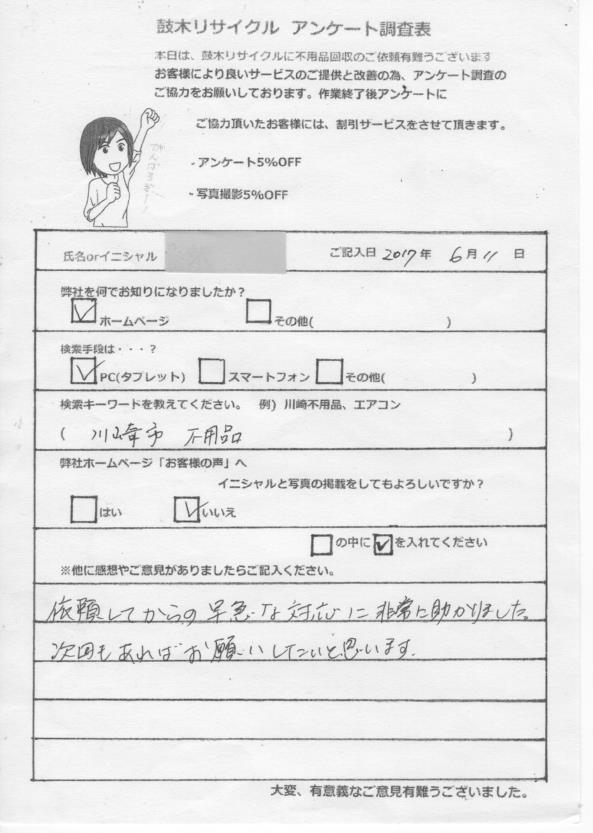 鼓木リサイクル アンケート調査表
本日は、鼓木リサイクルに不用品回収のご依頼有難うございます
お客様により良いサービスのご提供と改善の為、アンケート調査の
ご協力をお願いしております。作業終了後アンケートに
ご協力頂いたお客様には、割引サービスをさせて頂きます。
がんばるぞー!
・アンケート5%OFF
・写真撮影5%OFF
氏名orイニシャル ご記入日 2017年 6月 11 日
弊社を何でお知りになりましたか?
ホームページ その他( )
検索手段は・・・?
PC(タブレット) スマートフォン その他( )
検索キーワードを教えてください。 例) 川崎不用品、エアコン
( 川崎市 不用品 )
弊社ホームページ「お客様の声」へ
イニシャルと写真の掲載をしてもよろしいですか?
はい いいえ
の中に を入れてください
※他に感想やご意見がありましたらご記入ください。
依頼してからの早急な対応に非常に助かりました。
次回もあればお願いしたいと思います。
大変、有意義なご意見有難うございました。